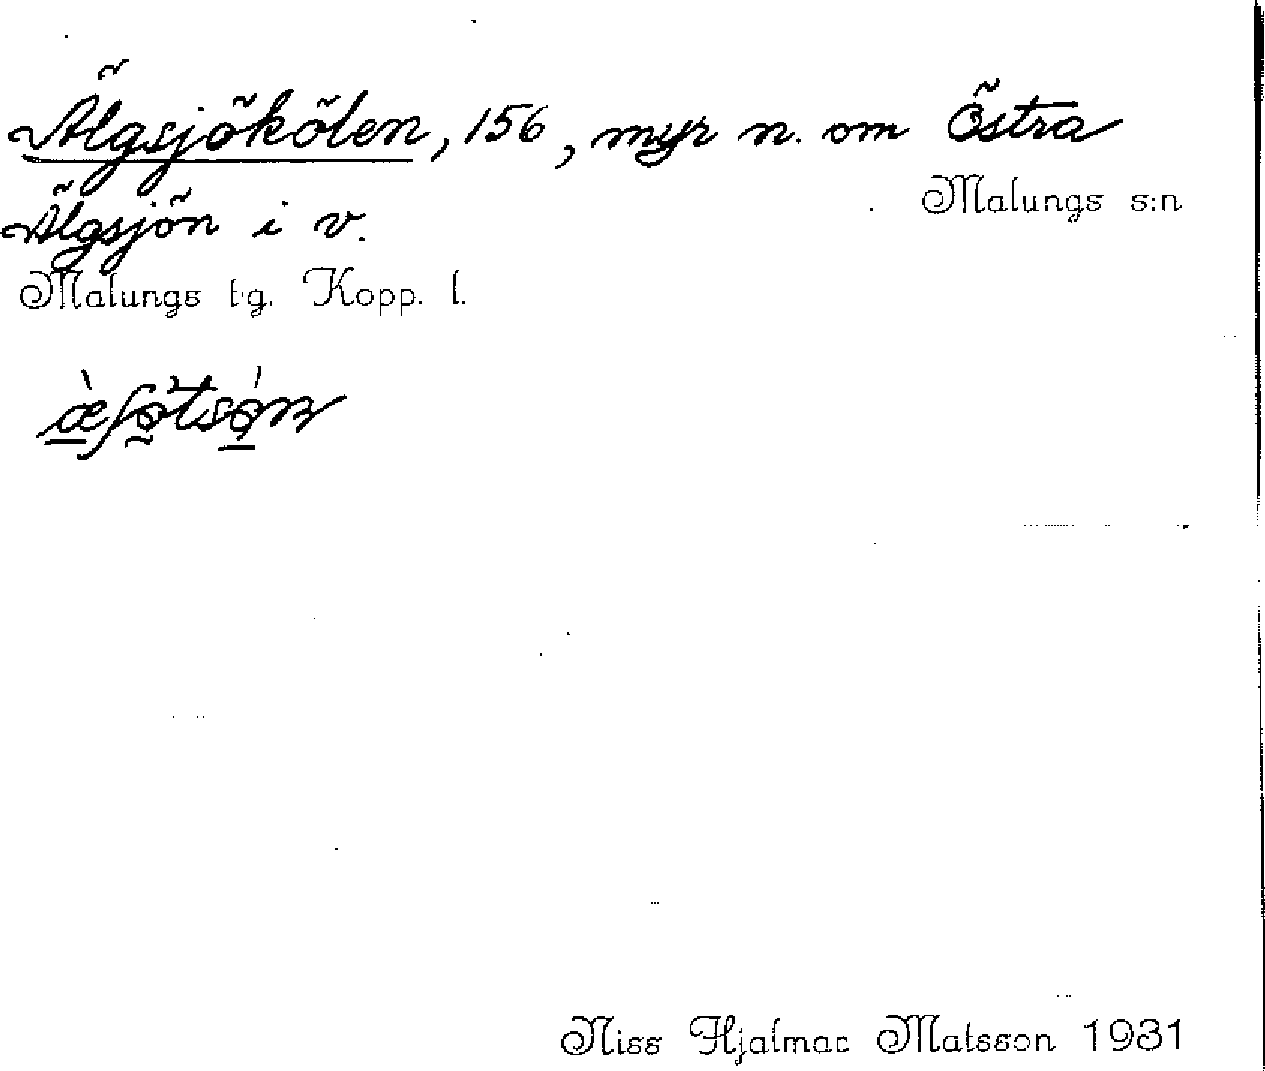 Älgsjökölen, 156, myr n. om Östra
Malungs s:n
Älgsjön i v.
Malungs tg. Kopp. l.
Niss Hjalmar Matsson 1931